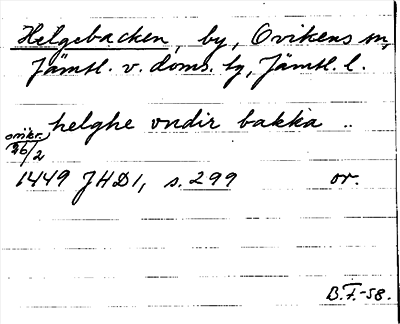 Helgebacken, by, Ovikens sn,
Jämtl. v. doms. lg, Jämtl. l.
helghe vndir bakka ..
omkr.
26/2
1449 JHD1, s. 299 or.
B.F.-58.